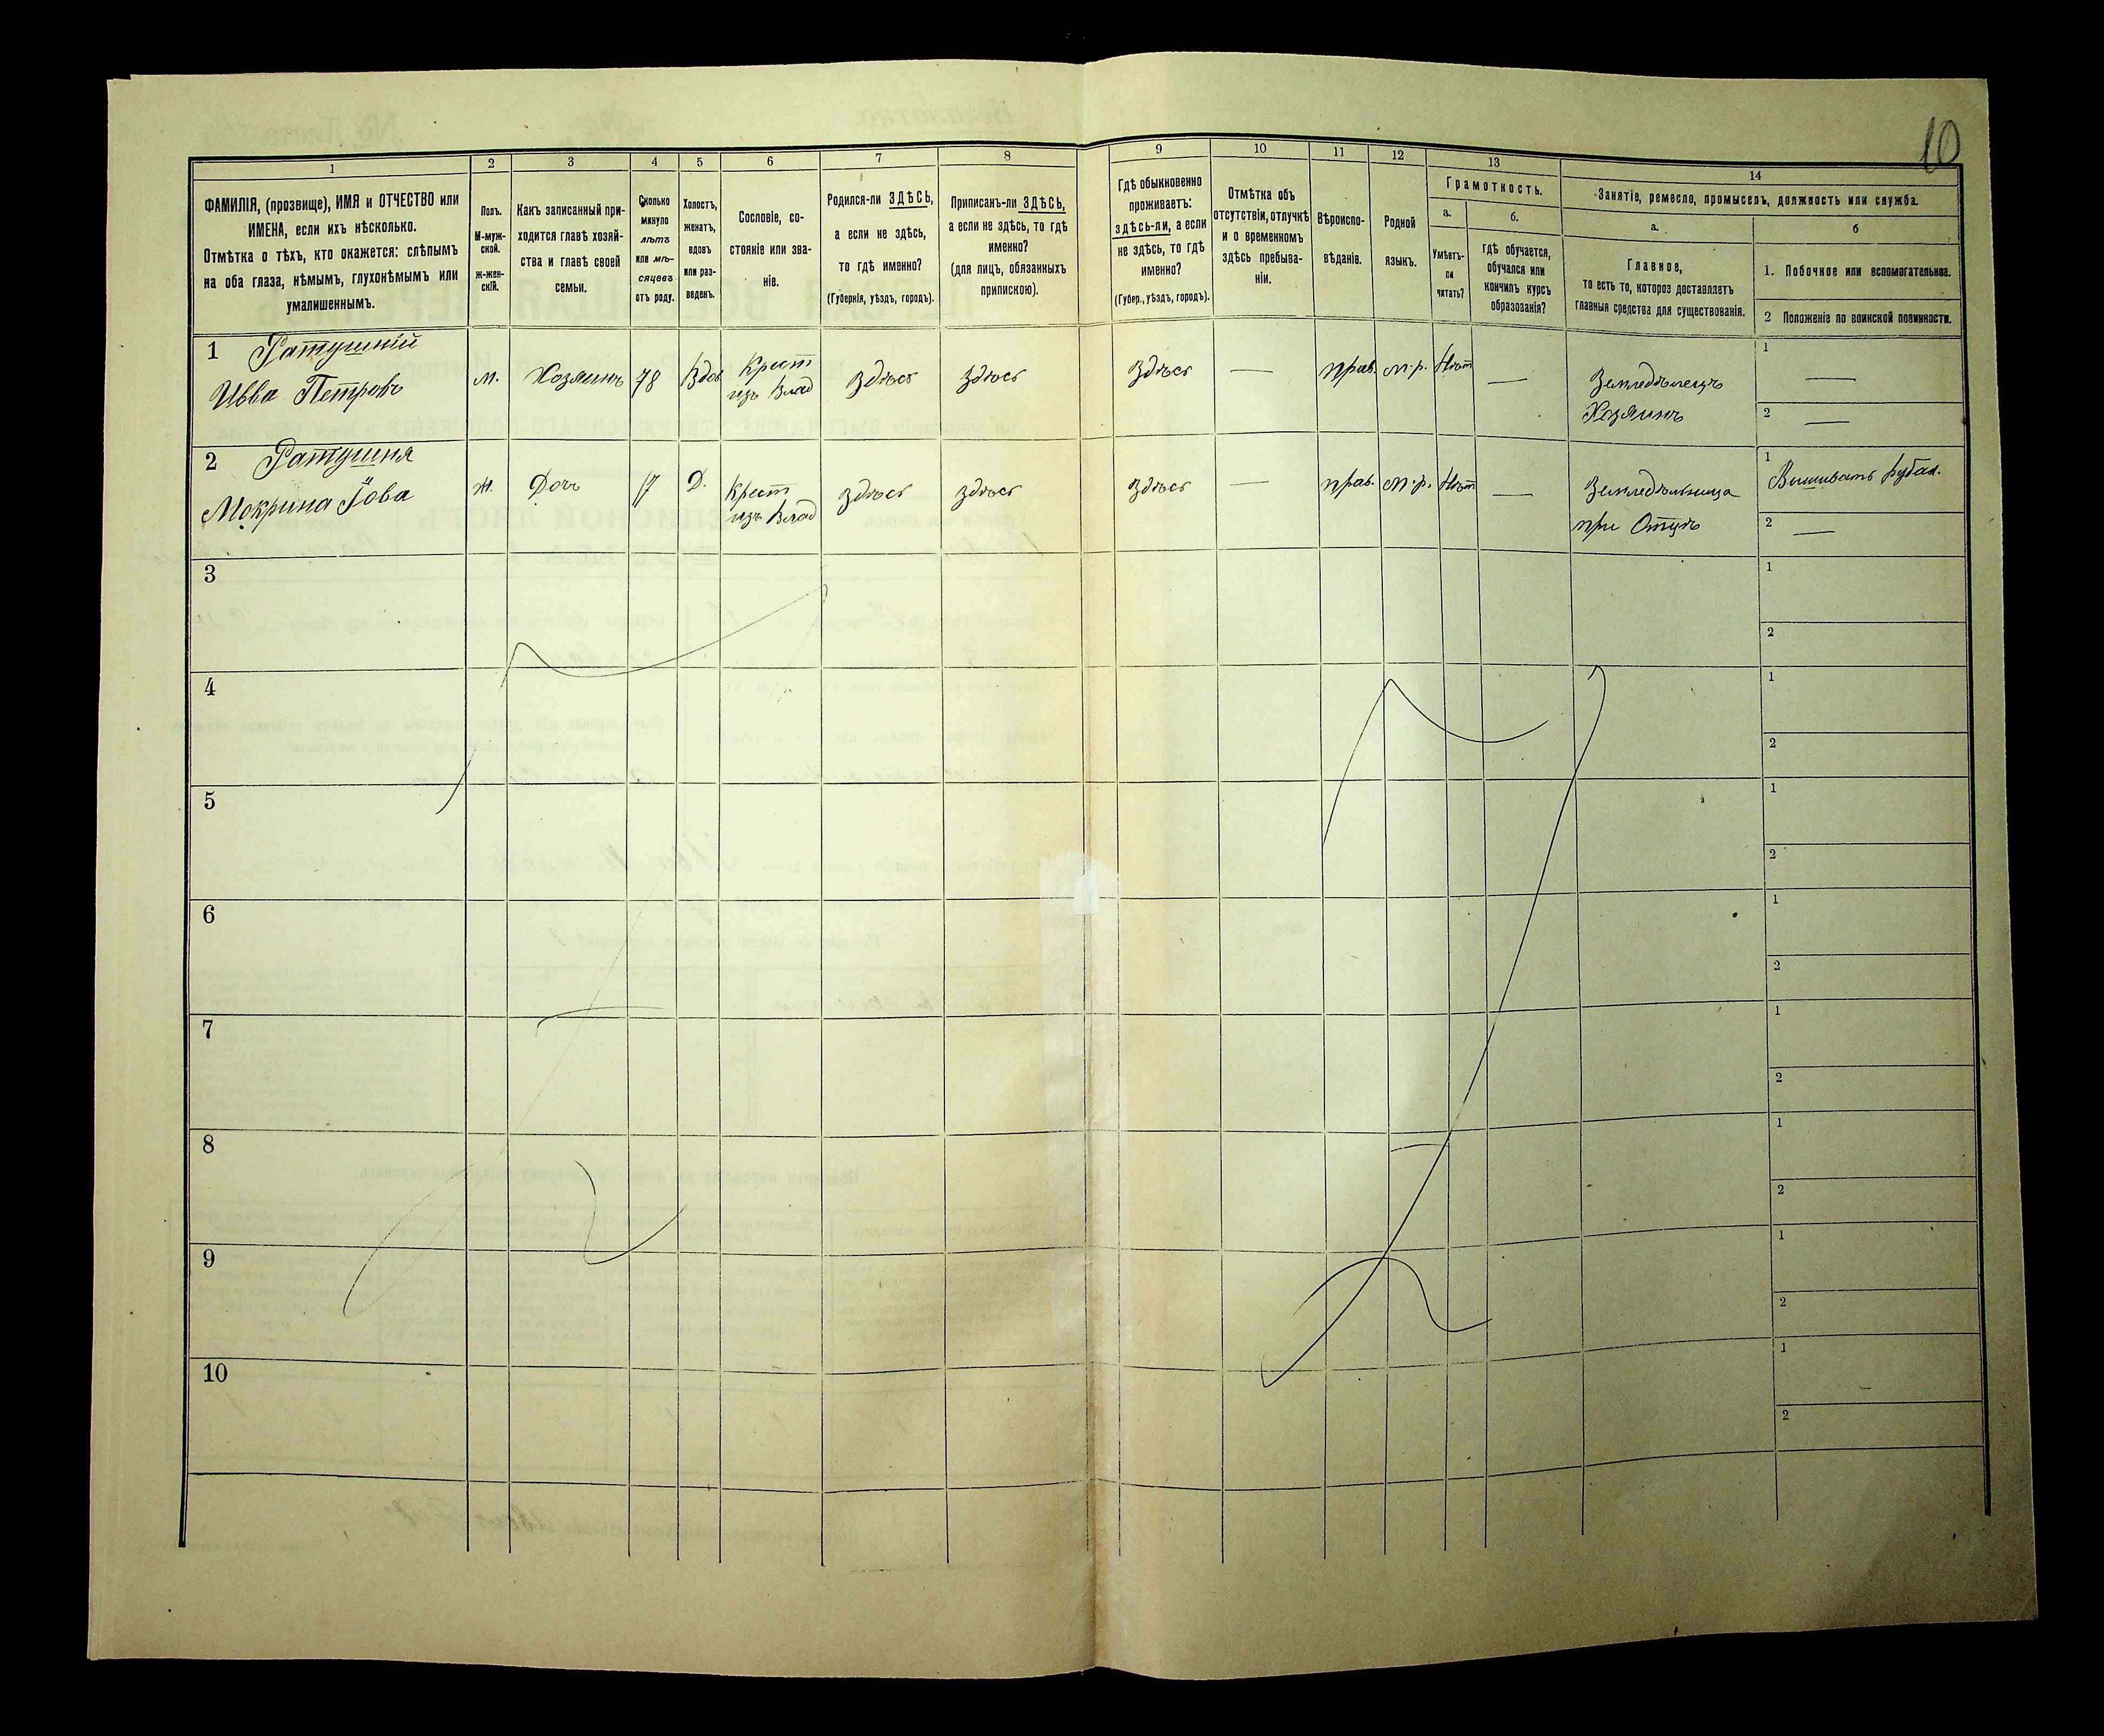 10
1
ФАМИЛІЯ, (прозвище), ИМЯ и ОТЧЕСТВО или
ИМЕНА, если ихъ нѣсколько.
Отмѣтка о тѣхъ, кто окажется: слѣпымъ
на оба глаза, нѣмымъ, глухонѣмымъ или
умалишеннымъ.
2
Полъ.
М-муж-
ской.
ж-жен-
скій.
3
Какъ записанный при-
ходится главѣ хозяй-
ства и главѣ своей
семьи.
4
Сколько
минуло
лѣтъ
или мѣ-
сяцевъ
отъ роду.
5
Холостъ,
женатъ,
вдовъ
или раз-
веденъ.
6
Сословіе, со-
стояніе или зва-
ніе.
7
Родился-ли ЗДѢСЬ,
а если не здѣсь,
то гдѣ именно?
(Губернія, уѣздъ, городъ).
8
Приписанъ-ли ЗДѢСЬ,
а если не здѣсь, то гдѣ
именно?
(для лицъ, обязанныхъ
припискою).
9
Гдѣ обыкновенно
проживаетъ:
здѣсь-ли, а если
не здѣсь, то гдѣ
именно?
(Губер., уѣздъ, городъ).
10
Отмѣтка объ
отсутствіи, отлучкѣ
и о временномъ
здѣсь пребыва-
ніи.
11
Вѣроиспо-
вѣданіе.
12
Родной
языкъ.
13
Грамотность.
а.
Умѣетъ-
ли
читать?
б.
гдѣ обучается,
обучался или
кончилъ курсъ
образованія?
14
Занятіе, ремесло, промыселъ, должность или служба.
а.
Главное,
то есть то, которое доставляетъ
главныя средства для существованія.
б
1. Побочное или вспомогательное.
2 Положеніе по воинской повинности.
1 Ратушній
Ивва Петровъ
м.
Хозяинъ
78
Вдов
Крест
изъ Влад
Здѣсь
Здѣсь
Здѣсь
—
прав.
м.р.
Нѣт
—
Земледѣлецъ
Хозяинъ
1
—
2
—
2 Ратушня
Мокрина Іова
ж.
Дочь
17
Д.
Крест
изъ Влад
Здѣсь
Здѣсь
Здѣсь
—
прав.
м.р.
Нѣт
—
Земледѣльница
при Отцѣ
1
Вишивать рубах.
2
—
3
1
2
4
1
2
5
1
2
6
1
2
7
1
2
8
1
2
9
1
2
10
1
2